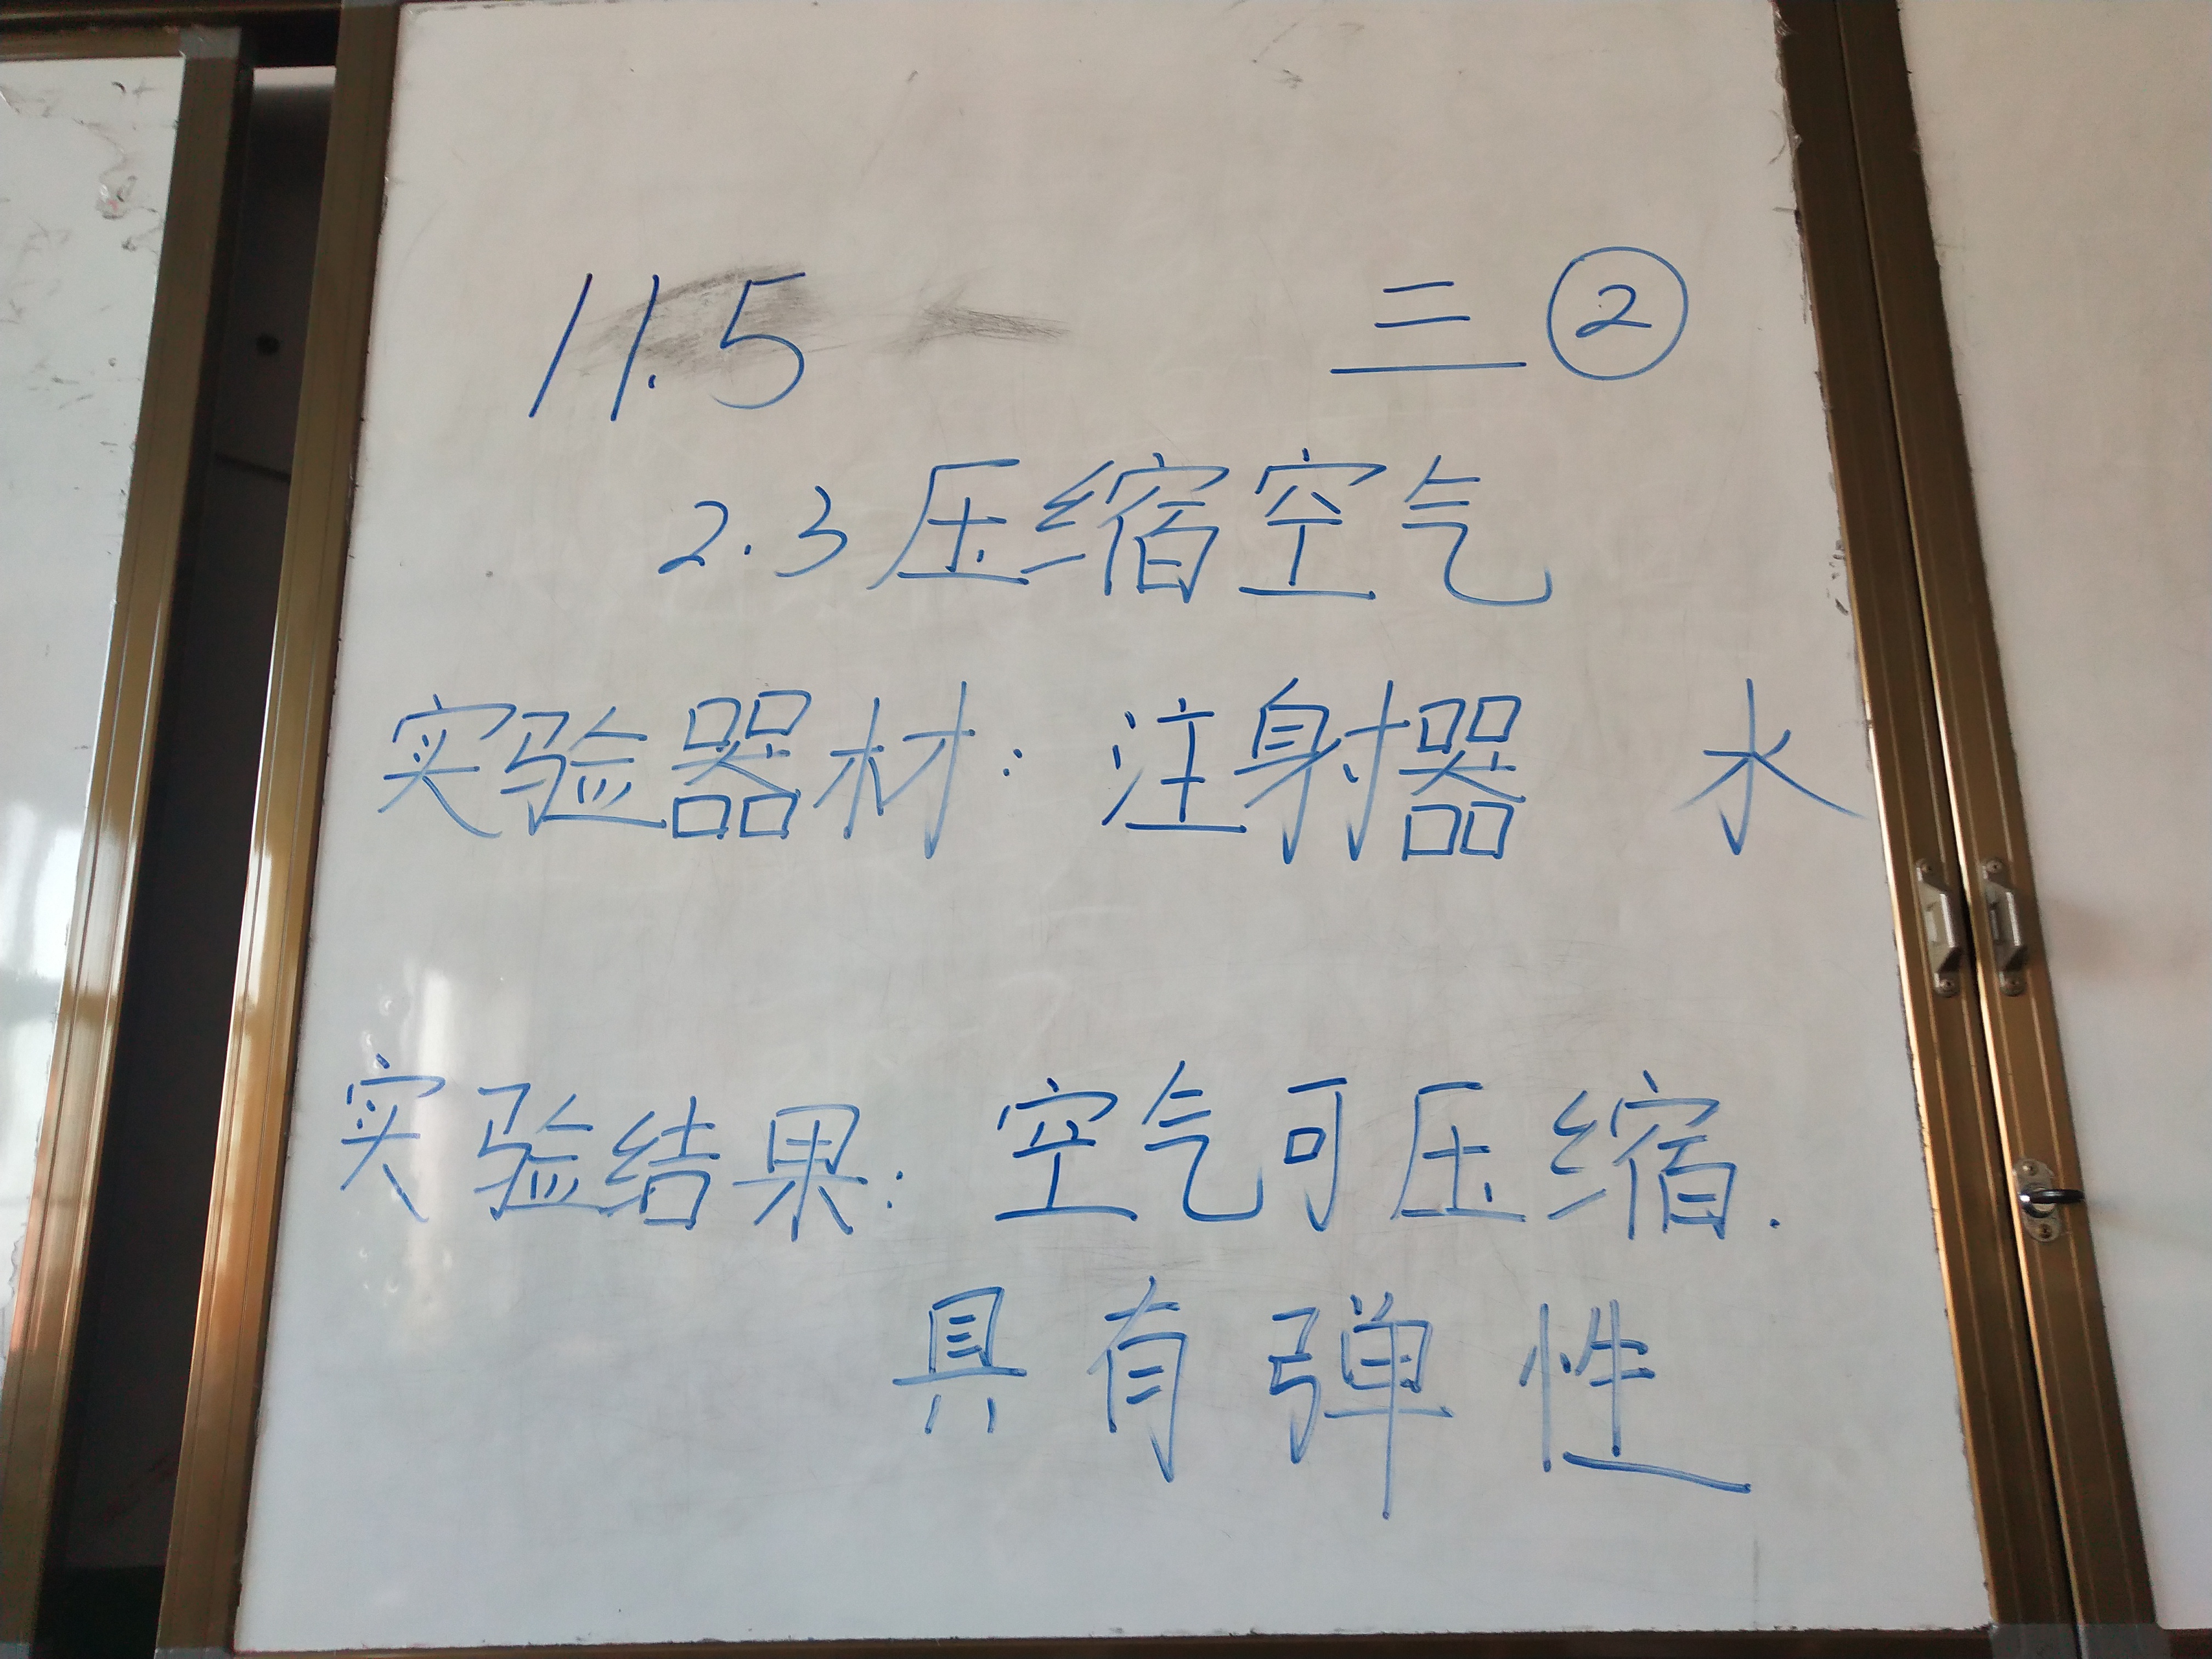 11.5 三②
2.3压缩空气
实验器材: 注射器 水
实验结果: 空气可压缩.
具有弹性